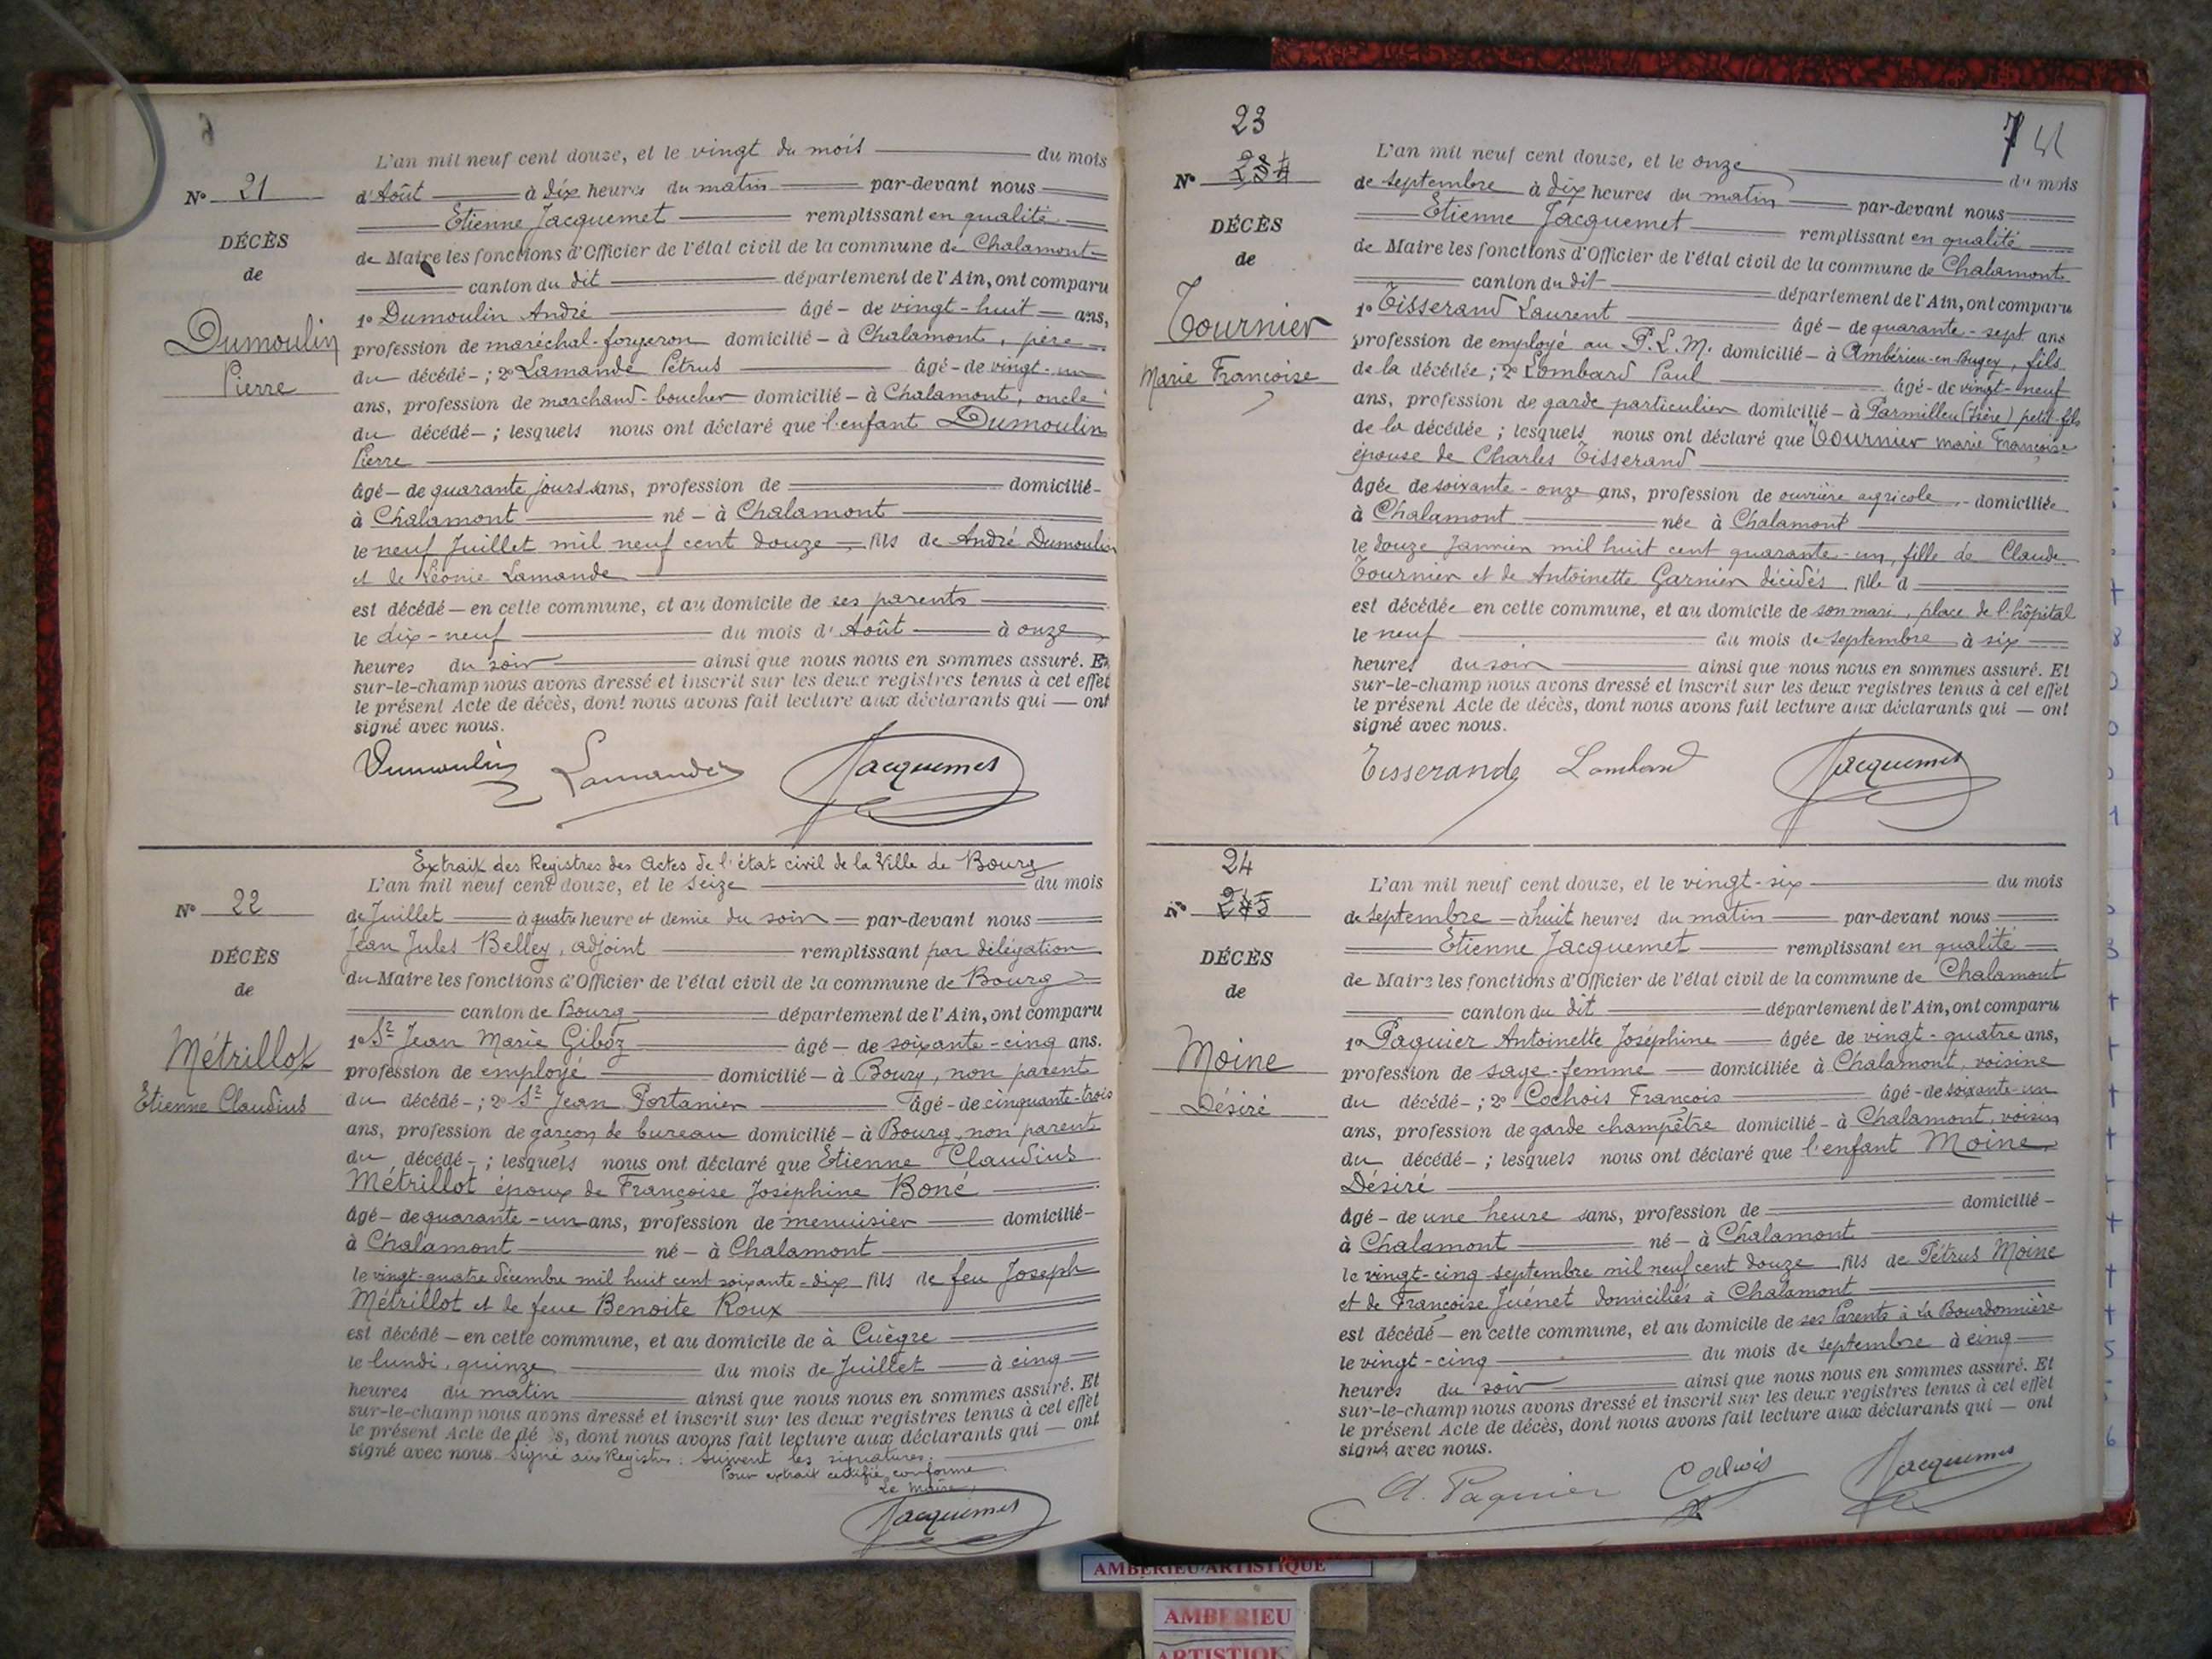 L'an mil neuf cent douze, et le vingt du mois du mois
N° 21
d'Août à dix heures du matin par-devant nous
Etienne Jacquemet remplissant en qualité
DÉCÈS
de Maire les fonctions d'Officier de l'état civil de la commune de Chalamont
de
canton du dit département de l'Ain, ont comparu
1° Dumoulin André âgé - de vingt-huit ans,
Dumoulin
profession de maréchal-forgeron domicilié - à Chalamont, père
Pierre
du décédé - ; 2° Lamande Pétrus âgé - de vingt-un
ans, profession de marchand-boucher domicilié - à Chalamont, oncle
du décédé - ; lesquels nous ont déclaré que l'enfant Dumoulin
Pierre
âgé - de quarante jours ans, profession de domicilié -
à Chalamont né - à Chalamont
le neuf Juillet mil neuf cent douze, fils de André Dumoulin
et de Léonie Lamande
est décédé - en cette commune, et au domicile de ses parents
le dix-neuf du mois d'Août à onze
heures du soir ainsi que nous nous en sommes assuré. Et
sur-le-champ nous avons dressé et inscrit sur les deux registres tenus à cet effet
le présent Acte de décès, dont nous avons fait lecture aux déclarants qui — ont
signé avec nous.
Dumoulin Lamande Jacquemet
Extrait des Registres des Actes de l'état civil de la Ville de Bourg
L'an mil neuf cent douze, et le seize du mois
N° 22
de Juillet à quatre heure et demie du soir par-devant nous
Jean Jules Belley, adjoint remplissant par délégation
DÉCÈS
du Maire les fonctions d'Officier de l'état civil de la commune de Bourg
de
canton de Bourg département de l'Ain, ont comparu
1° Sr Jean Marie Giboz âgé - de soixante-cinq ans.
Métrillot
profession de employé domicilié - à Bourg, non parent
Etienne Claudius
du décédé - ; 2° Sr Jean Portanier âgé - de cinquante-trois
ans, profession de garçon de bureau domicilié - à Bourg, non parent
du décédé - ; lesquels nous ont déclaré que Etienne Claudius
Métrillot époux de Françoise Joséphine Boné
âgé - de quarante-un ans, profession de menuisier domicilié -
à Chalamont né - à Chalamont
le vingt-quatre décembre mil huit cent soixante-dix fils de feu Joseph
Métrillot et de feue Benoite Roux
est décédé - en cette commune, et au domicile de à Cuègre
le lundi, quinze du mois de Juillet à cinq
heures du matin ainsi que nous nous en sommes assuré. Et
sur-le-champ nous avons dressé et inscrit sur les deux registres tenus à cet effet
le présent Acte de dé s, dont nous avons fait lecture aux déclarants qui — ont
signé avec nous. Signé au Registre : suivent les signatures.
Pour extrait certifié conforme
Le Maire,
Jacquemet
23
7
L'an mil neuf cent douze, et le onze du mois
N°
de septembre à dix heures du matin par-devant nous
DÉCÈS
Etienne Jacquemet remplissant en qualité
de
de Maire les fonctions d'Officier de l'état civil de la commune de Chalamont
canton du dit département de l'Ain, ont comparu
Tournier
1° Tisserand Laurent âgé - de quarante-sept ans
profession de employé au P.L.M. domicilié - à Ambérieu-en-Bugey, fils
Marie Françoise
de la décédée ; 2° Lombard Paul âgé - de vingt-neuf
ans, profession de garde particulier domicilié - à Parmilieu (Isère) petit-fils
de la décédée ; lesquels nous ont déclaré que Tournier Marie Françoise
épouse de Charles Tisserand
âgée de soixante-onze ans, profession de ouvrière agricole domiciliée
à Chalamont née à Chalamont
le douze Janvier mil huit cent quarante-un, fille de Claude
Tournier et de Antoinette Garnier décédés fille d
est décédée en cette commune, et au domicile de son mari, place de l'hôpital
le neuf du mois de septembre à six
heures du soir ainsi que nous nous en sommes assuré. Et
sur-le-champ nous avons dressé et inscrit sur les deux registres tenus à cet effet
le présent Acte de décès, dont nous avons fait lecture aux déclarants qui — ont
signé avec nous.
Tisserand Lombard Jacquemet
24
L'an mil neuf cent douze, et le vingt-six du mois
N° 
de septembre à huit heures du matin par-devant nous
Etienne Jacquemet remplissant en qualité
DÉCÈS
de Maire les fonctions d'Officier de l'état civil de la commune de Chalamont
de
canton du dit département de l'Ain, ont comparu
1° Paquier Antoinette Joséphine âgée de vingt-quatre ans,
Moine
profession de sage-femme domiciliée à Chalamont, voisine
Désiré
du décédé - ; 2° Cochois François âgé - de soixante-un
ans, profession de garde champêtre domicilié - à Chalamont, voisin
du décédé - ; lesquels nous ont déclaré que l'enfant Moine
Désiré
âgé - de une heure ans, profession de domicilié -
à Chalamont né - à Chalamont
le vingt-cinq septembre mil neuf cent douze fils de Pétrus Moine
et de Françoise Juénet domiciliés à Chalamont
est décédé - en cette commune, et au domicile de ses Parents à La Bourdonnière
le vingt-cinq du mois de septembre à cinq
heures du soir ainsi que nous nous en sommes assuré. Et
sur-le-champ nous avons dressé et inscrit sur les deux registres tenus à cet effet
le présent Acte de décès, dont nous avons fait lecture aux déclarants qui — ont
signé avec nous.
A. Paquier Cochois Jacquemet
AMBERIEU ARTISTIQUE
AMBERIEU
ARTISTIQUE